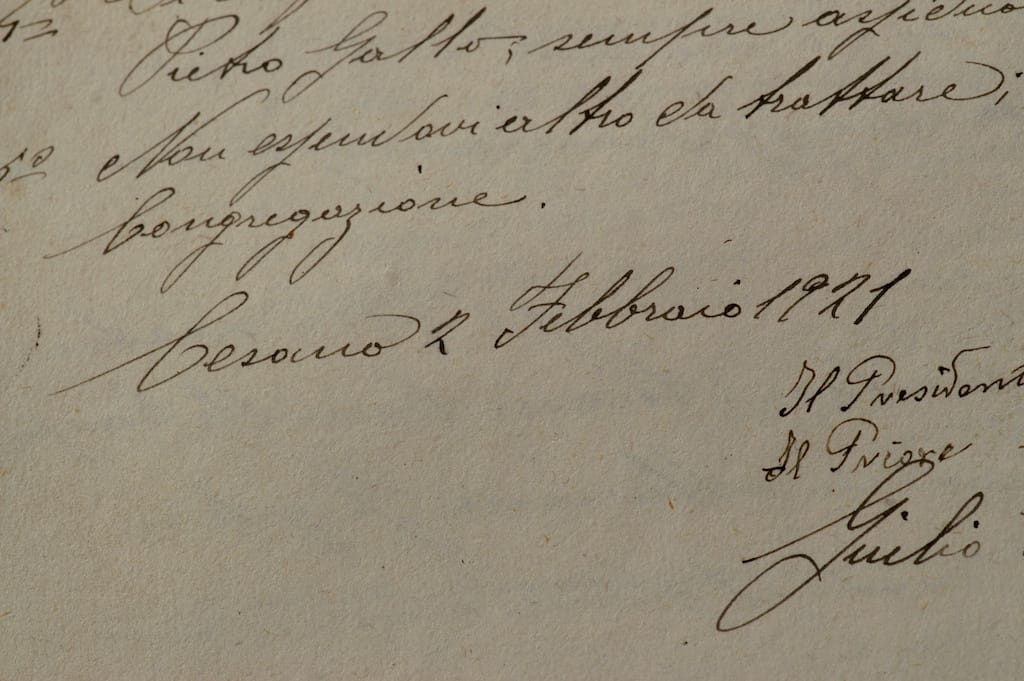 4º
Pietro Gallo, sempre assiduo
5º Non essendovi altro da trattare,
Congregazione.
Cesano 2 Febbraio 1921
Il President
Il Priore
Giulio